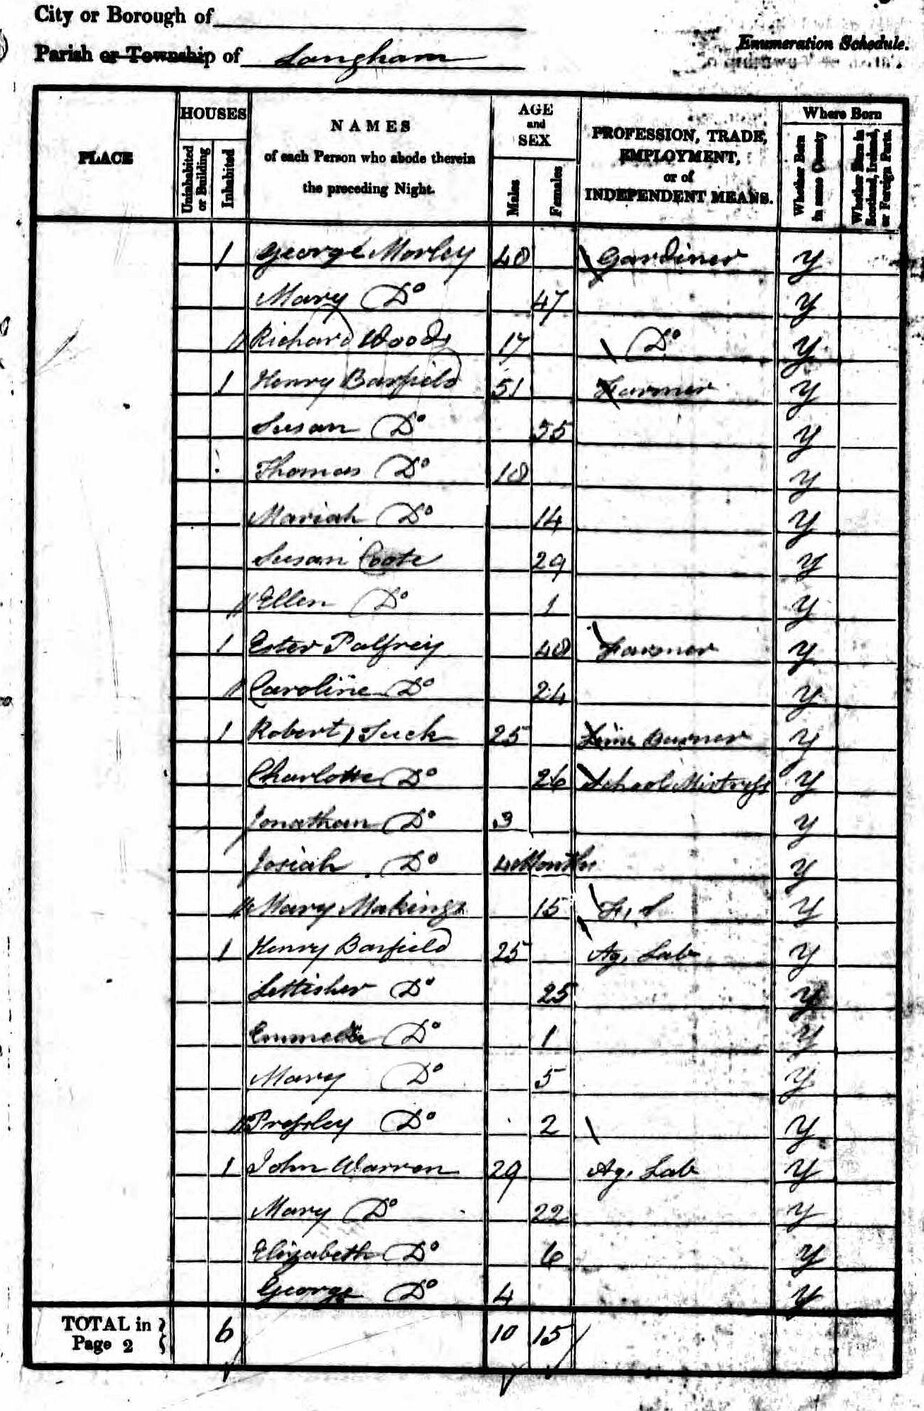 City or Borough of
Parish or Township of Langham
Enumeration Schedule.
PLACE
HOUSES
Uninhabited or Building
Inhabited
NAMES
of each Person who abode therein
the preceding Night.
AGE
and
SEX
Males
Females
PROFESSION, TRADE,
EMPLOYMENT,
or of
INDEPENDENT MEANS.
Where Born
Whether Born in same County
Whether Born in Scotland, Ireland, or Foreign Parts.
1 George Morley 48 Gardiner y
Mary Do 47 y
Richard Woods 17 Do y
1 Henry Barfield 51 Farmer y
Susan Do 55 y
Thomas Do 18 y
Mariah Do 14 y
Susan Coote 29 y
Ellen Do 1 y
1 Ester Palfrey 48 Farmer y
Caroline Do 24 y
1 Robert Tuck 25 Lime Burner y
Charlotte Do 26 School Mistress y
Jonathan Do 3 y
Josiah Do 4 Months y
Mary Makings 15 F, S y
1 Henry Barfield 25 Ag. Lab y
Lettisher Do 25 y
Do 1 y
Mary Do 5 y
Pressley Do 2 y
1 John Warren 29 Ag. Lab y
Mary Do 22 y
Elizabeth Do 6 y
George Do 4 y
TOTAL in
Page 2
6 10 15